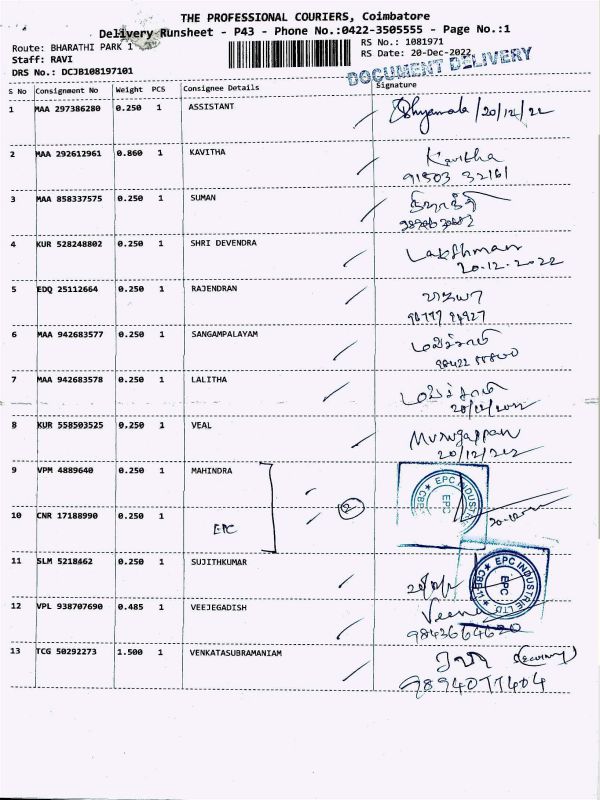 THE PROFESSIONAL COURIERS, Coimbatore
Delivery Runsheet - P43 - Phone No.:0422-3505555 - Page No.:1
Route: BHARATHI PARK 1 RS No.: 1081971
Staff: RAVI RS Date: 20-Dec-2022
DRS No.: DCJB108197101
DOCUMENT DELIVERY
S No Consignment No Weight PCS Consignee Details Signature
1 MAA 297386280 0.250 1 ASSISTANT Shyamala /20/12/22
2 MAA 292612961 0.860 1 KAVITHA Kavitha
91503 32161
3 MAA 858337575 0.250 1 SUMAN
4 KUR 528248802 0.250 1 SHRI DEVENDRA Lakshman
20.12.2022
5 EDQ 25112664 0.250 1 RAJENDRAN
6 MAA 942683577 0.250 1 SANGAMPALAYAM
7 MAA 942683578 0.250 1 LALITHA
20/12/2022
8 KUR 558503525 0.250 1 VEAL Murugappan
20/12/22
9 VPM 4889640 0.250 1 MAHINDRA
2
10 CNR 17188990 0.250 1 EPC
EPC INDUSTRIE LTD. CBE-11 EPC
11 SLM 5218462 0.250 1 SUJITHKUMAR
EPC INDUSTRIE LTD. CBE-11 EPC
12 VPL 938707690 0.485 1 VEEJEGADISH Veen
9843664620
13 TCG 50292273 1.500 1 VENKATASUBRAMANIAM (Security)
9894077404